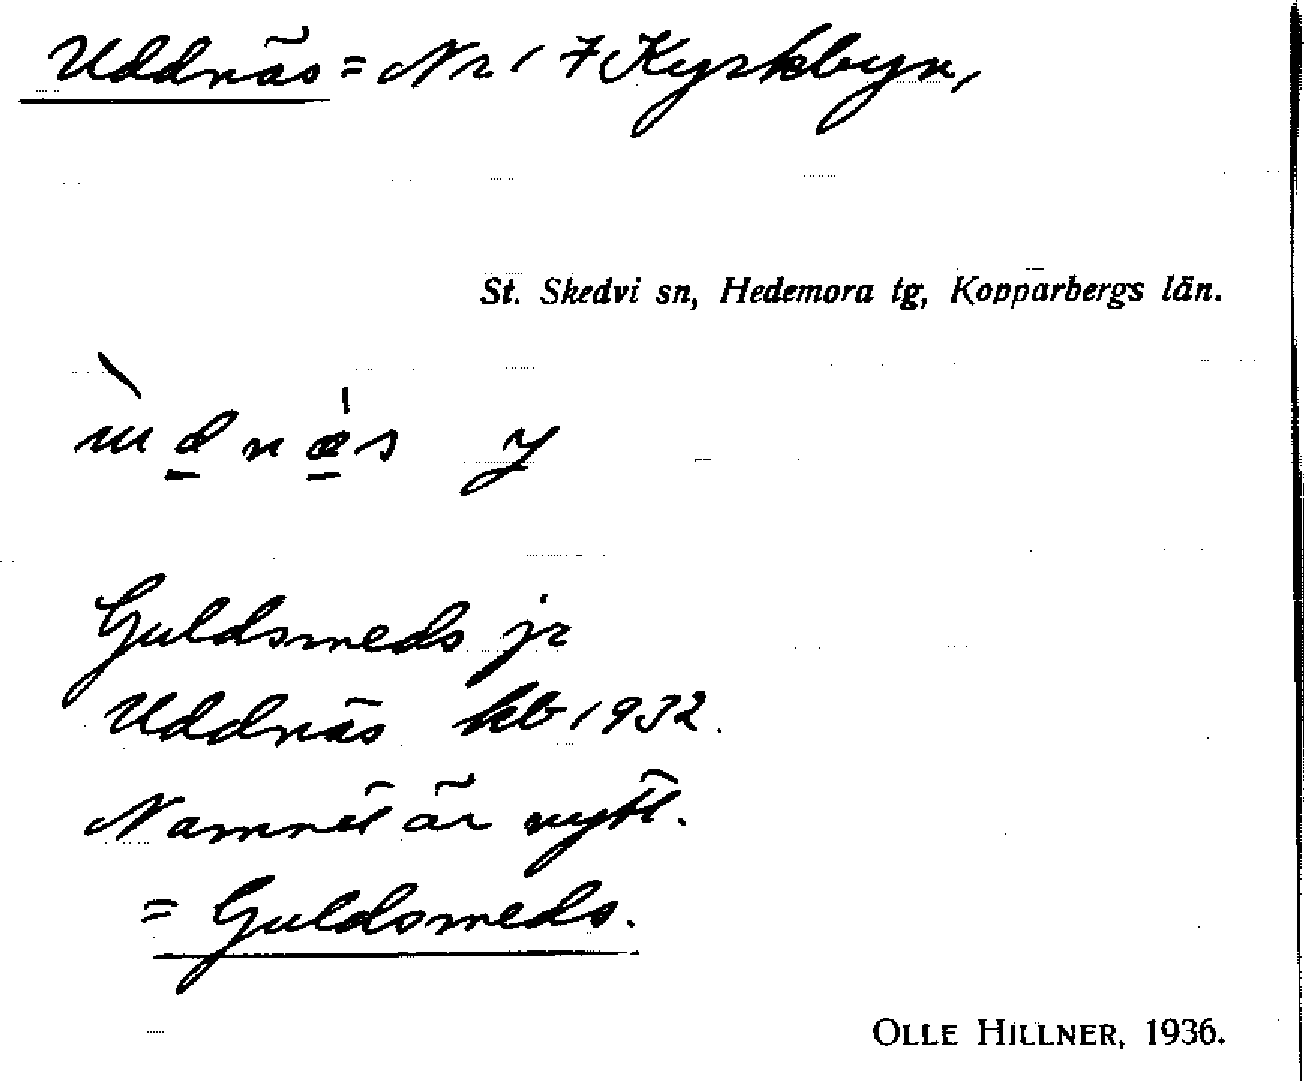 Uddnäs = Nr 17 Kyrkbyn,
St. Skedvi sn, Hedemora tg, Kopparbergs län.
Guldsmeds jr
Uddnäs kb 1932.
Namnet är nytt.
= Guldsmeds.
OLLE HILLNER, 1936.